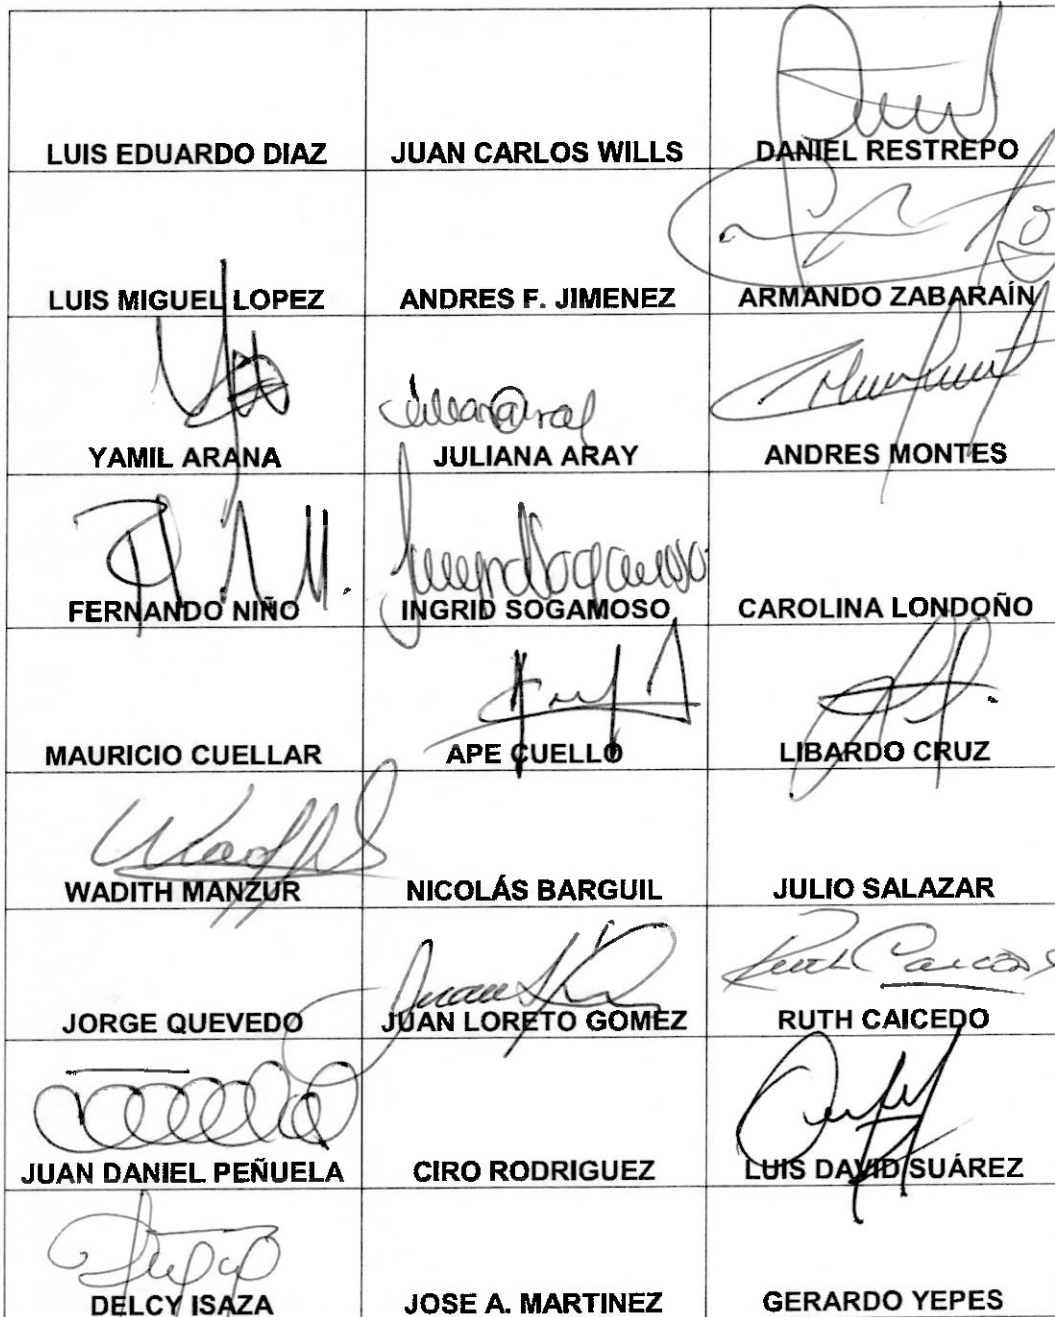 LUIS EDUARDO DIAZ
JUAN CARLOS WILLS
DANIEL RESTREPO
LUIS MIGUEL LOPEZ
ANDRES F. JIMENEZ
ARMANDO ZABARAÍN
YAMIL ARANA
JULIANA ARAY
ANDRES MONTES
FERNANDO NIÑO
INGRID SOGAMOSO
CAROLINA LONDOÑO
MAURICIO CUELLAR
APE CUELLO
LIBARDO CRUZ
WADITH MANZUR
NICOLÁS BARGUIL
JULIO SALAZAR
JORGE QUEVEDO
JUAN LORETO GOMEZ
RUTH CAICEDO
JUAN DANIEL PEÑUELA
CIRO RODRIGUEZ
LUIS DAVID SUÁREZ
DELCY ISAZA
JOSE A. MARTINEZ
GERARDO YEPES